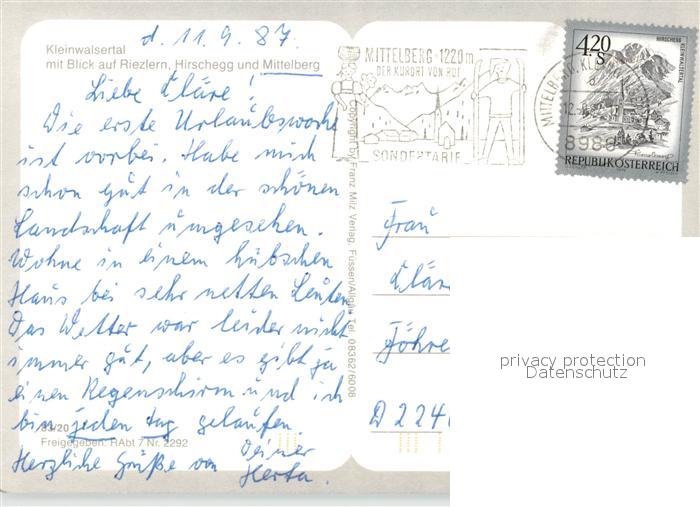 Kleinwalsertal
mit Blick auf Riezlern, Hirschegg und Mittelberg
d. 11.9.87.
Liebe Cläre!
Die erste Urlaubswoche
ist vorbei. Habe mich
schon gut in der schönen
Landschaft umgesehen.
Wohne in einem hübschen
Haus bei sehr netten Leuten
Das Wetter war leider nicht
immer gut, aber es gibt ja
einen Regenschirm und ich
bin jeden Tag gelaufen.
83/20
Freigegeben: RAbt 7 Nr. 2292
Herzliche Grüße von Deiner
Herta.
Copyright by Franz Milz Verlag, Füssen/Allgäu Tel. 08362/6008
MITTELBERG · 1220 m
DER KURORT VON RUF
SONDERTARIF
MITTELBERG, KL
12.
8986
4.20
S
HIRSCHEGG
KLEINWALSERTAL
REPUBLIK ÖSTERREICH
Frau
Cläre
Föhre
D 224
privacy protection
Datenschutz